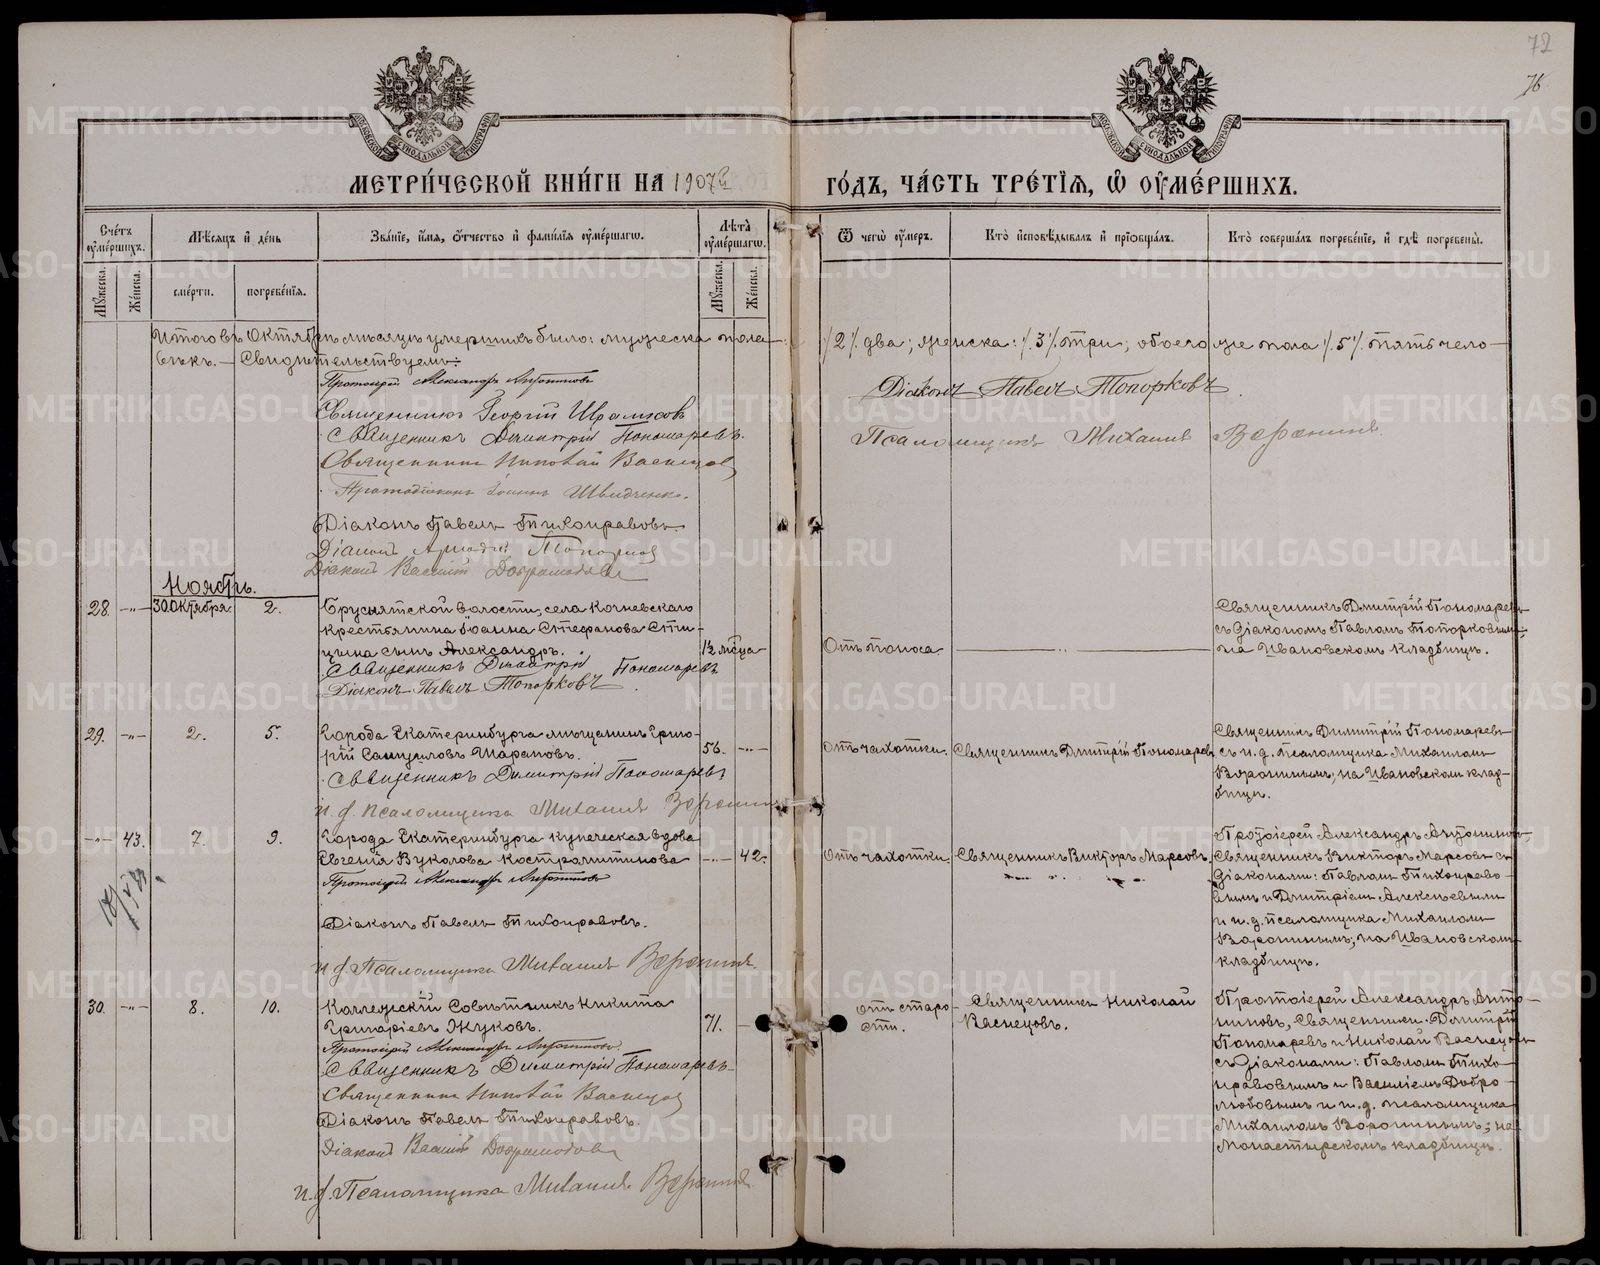 72
76
МЕТРИ́ЧЕСКОЙ КНИ́ГИ НА 1907й ГО́ДЪ, ЧА́СТЬ ТРЕ́ТІѦ, Ѡ ОУМЕ́РШИХЪ.
Сче́тъ оуме́ршихъ.
Мѣ́сяцъ и де́нь
Зва́ніе, и́мя, о́тчество и фами́лія оуме́ршагω.
Лѣ́та оуме́ршагω.
Ѿ чегὼ оу́меръ.
Кто̀ исповѣ́дывалъ и пріобща́лъ.
Кто̀ соверша́лъ погребе́ніе, и гдѣ̀ погребены̀.
Му́жеска. Же́нска. сме́рти. погребе́нія. Му́жеска. Же́нска.
Итого въ Октябрѣ мѣсяцѣ умершихъ было: мужеска пола /2/. два; женска: /.3/. три; обоего же пола /.5/. пять чело-
вѣкъ. — Свидѣтельствуемъ:
Протоіерей Александръ Антониновъ
Діаконъ Павелъ Топорковъ.
Священникъ Георгій
Священникъ Димитрій Пономаревъ.
Псаломщикъ Михаилъ Воронинъ
Священникъ Николай Васнецовъ
Протодіаконъ Іоаннъ Швидченко.
Діаконъ Павелъ Тихонравовъ.
Діаконъ Топорковъ
Діаконъ Василій Добролюбовъ
Ноябрь.
28. —"— 30 Октября. 2.
Бруснятской волости, села Кочневскаго
крестьянина Іоанна Стефанова Спи-
цына сынъ Александръ.
Священникъ Димитрій Пономаревъ
Діаконъ Павелъ Топорковъ.
1½ мѣсца
Отъ поноса
Священникъ Дмитрій Пономаревъ
съ діакономъ Павломъ Топорковымъ,
на Ивановскомъ кладбищѣ.
29. —"— 2. 5.
Города Екатеринбурга мѣщанинъ Григо-
рій Самуиловъ Шараповъ.
Священникъ Димитрій Пономаревъ
и. д. псаломщика Михаилъ Воронинъ
56. —"—
Отъ чахотки.
Священникъ Дмитрій Пономаревъ
Священникъ Димитрій Пономаревъ
съ и. д. псаломщика Михаиломъ
Воронинымъ, на Ивановскомъ клад-
бищѣ.
—"— 43. 7. 9.
Города Екатеринбурга купеческая вдова
Евгенія Вуколова Костромитинова
Протоіерей Александръ Антониновъ
Діаконъ Павелъ Тихонравовъ.
и. д. Псаломщика Михаилъ Воронинъ.
—"— 42.
Отъ чахотки.
Священникъ Викторъ Марсовъ
Протоіерей Александръ Антониновъ,
Священникъ Викторъ Марсовъ съ
діаконами: Павломъ Тихонраво-
вымъ и Дмитріемъ Алексѣевымъ
и и. д. псаломщика Михаиломъ
Воронинымъ; на Ивановскомъ
кладбищѣ.
30. —"— 8. 10.
Коллежскій Совѣтникъ Никита
Григоріевъ Жуковъ.
Протоіерей Александръ Антониновъ.
Священникъ Димитрій Пономаревъ
Священникъ Николай Васнецовъ
Діаконъ Павелъ Тихонравовъ.
Діаконъ Василій Добролюбовъ
и. д. Псаломщика Михаилъ Воронинъ
71. —
отъ старо-
сти.
Священникъ Николай
Васнецовъ.
Протоіерей Александръ Анто-
ниновъ, Священники Дмитрій
Пономаревъ и Николай Васнецовъ
съ діаконами: Павломъ Тихо-
нравовымъ и Василіемъ Добро-
любовымъ и и. д. псаломщика
Михаиломъ Воронинымъ; на
Монастырскомъ кладбищѣ.
METRIKI.GASO-URAL.RU